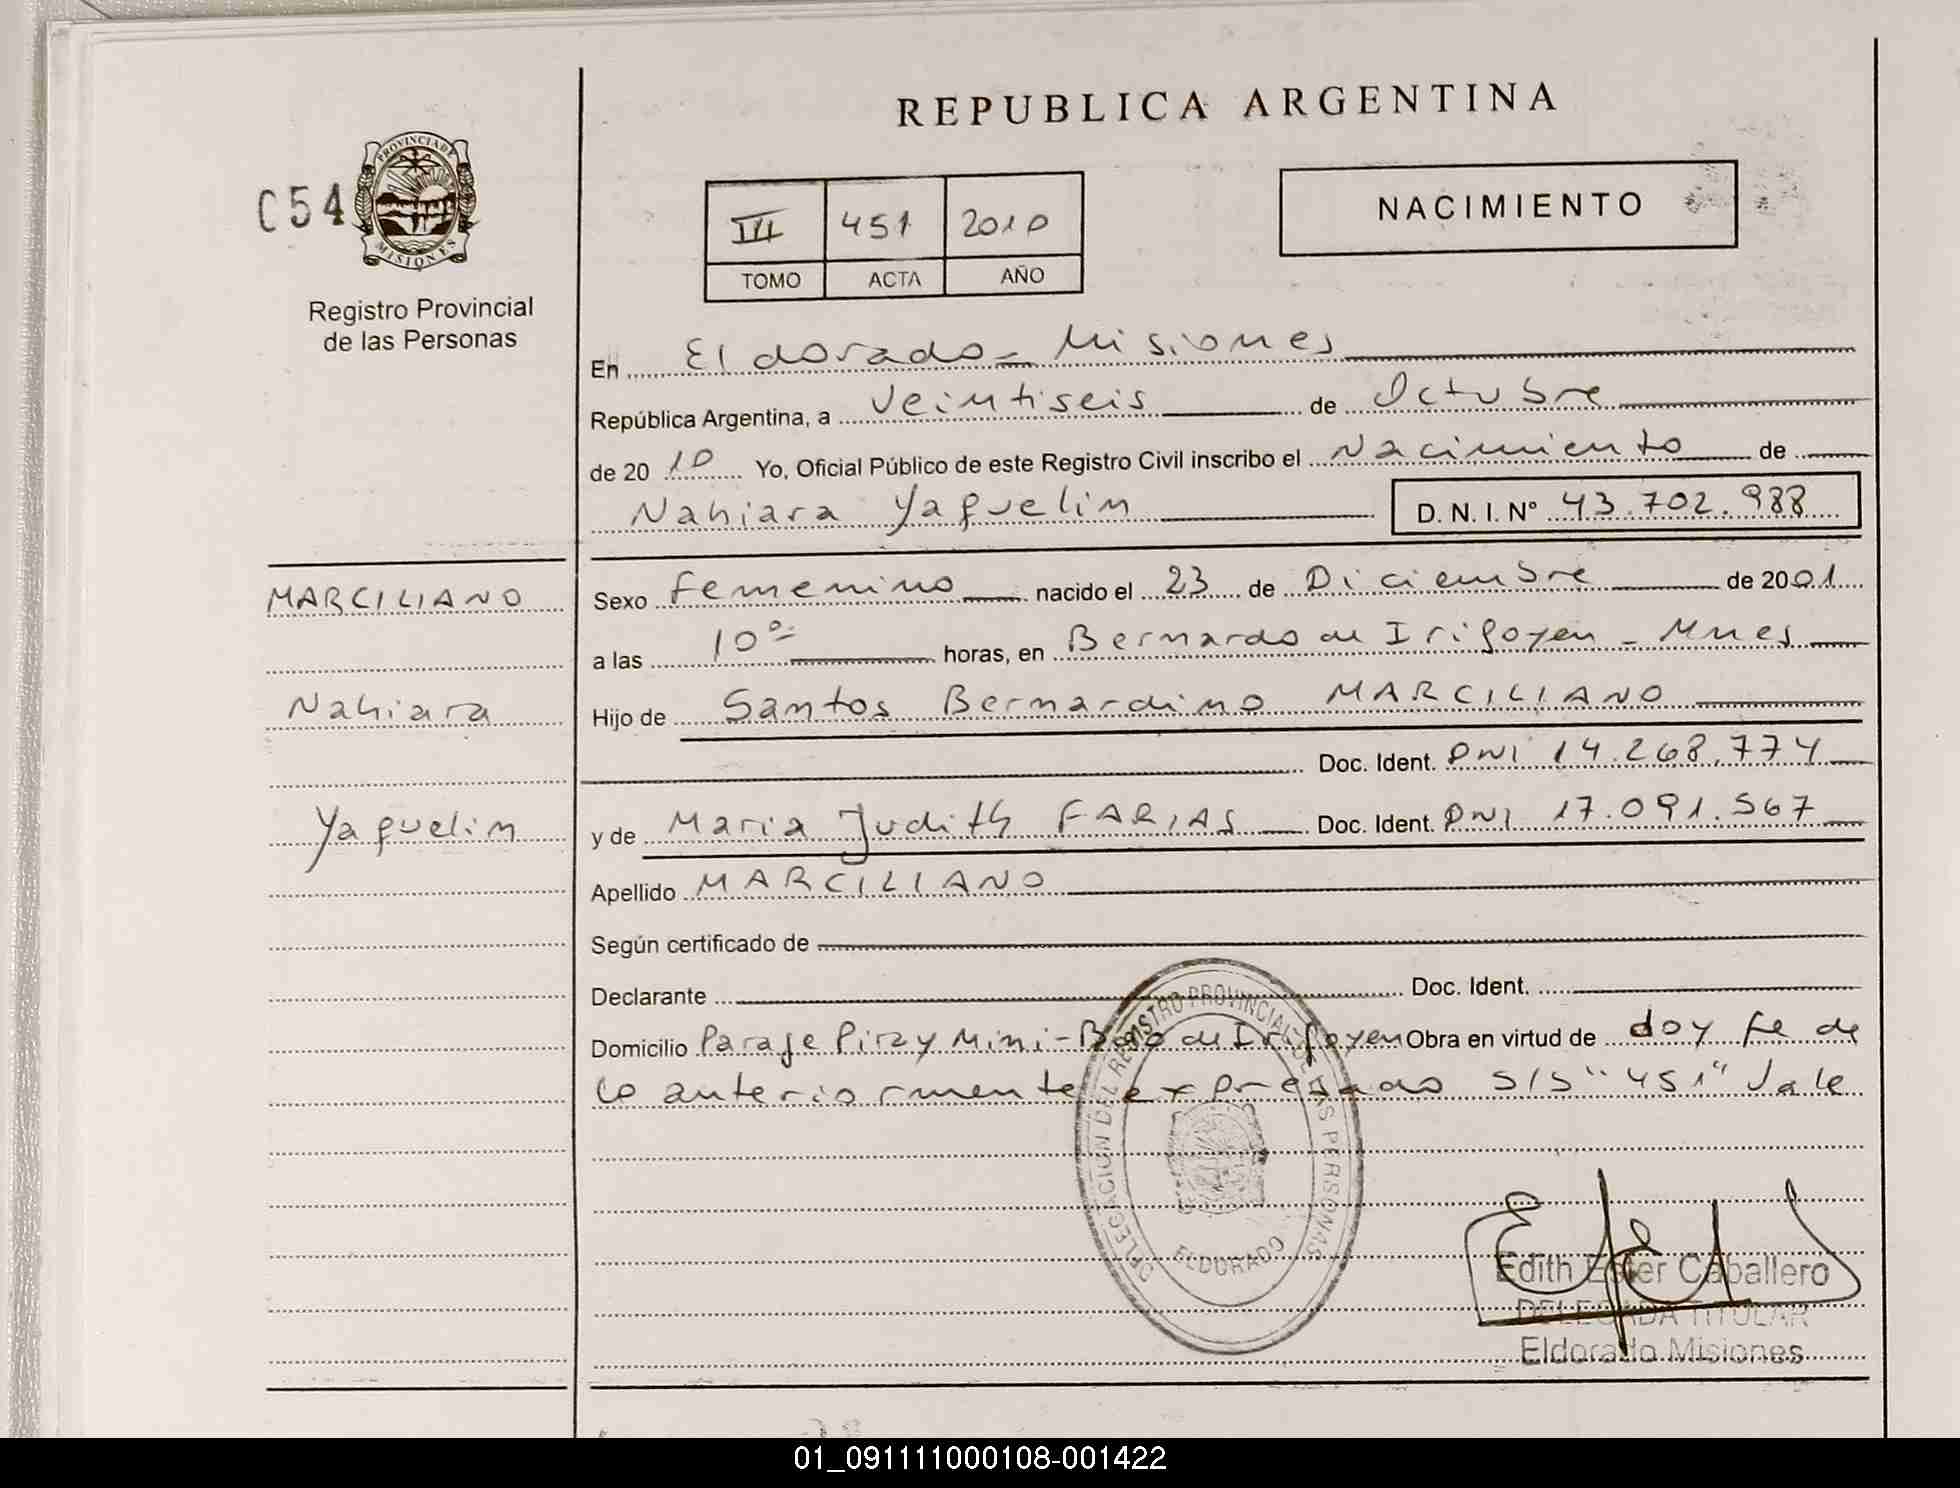 REPUBLICA ARGENTINA
C54
PROVINCIA DE
MISIONES
Registro Provincial
de las Personas
III 451 2010
TOMO ACTA AÑO
NACIMIENTO
En Eldorado - Misiones
República Argentina, a Veintiseis de Octubre
de 20 10 Yo, Oficial Público de este Registro Civil inscribo el Nacimiento de
Nahiara Yaquelin D. N. I. Nº 43.702.988
MARCILIANO
Nahiara
Yaquelin
Sexo Femenino nacido el 23 de Diciembre de 2001
a las 10 horas, en Bernardo de Irigoyen - Mnes
Hijo de Santos Bernardino MARCILIANO
Doc. Ident. DNI 14.268.774
y de Maria Judith FARIAS Doc. Ident. DNI 17.091.567
Apellido MARCILIANO
Según certificado de
Declarante Doc. Ident.
Domicilio Paraje Piray Mini - Bdo de Irigoyen Obra en virtud de doy fe de
lo anteriormente expresado S/S "451" Vale
DELEGACION DEL REGISTRO PROVINCIAL DE LAS PERSONAS
ELDORADO
Edith Ester Caballero
DELEGADA TITULAR
Eldorado Misiones
01_091111000108-001422